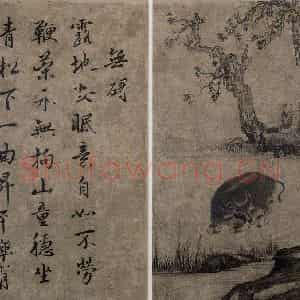 無碍
露地安眠意自如不勞
鞭策永無拘山童穩坐
青松下一曲昇平樂有
Shufawang.CN